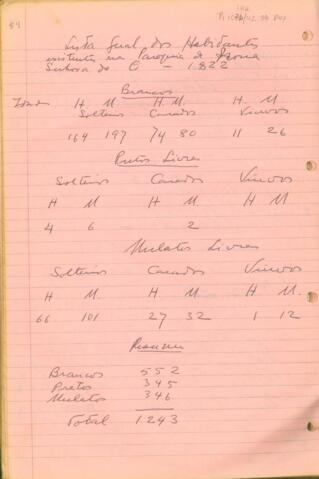 Lista Geral dos Habitantes
existentes na Paroquia de Nossa
Senhora do Ó - 1822
Brancos
H M H M. H M
Solteiros Casados Viuvos
164 197 74 80 11 26
Pretos Livres
Solteiros Casados Viuvos
H M H M. H M
4 6 2
Mulatos Livres
Solteiros Casados Viuvos
H M. H M. H M.
66 101 27 32 1 12
Resumo
Brancos 552
Pretos 345
Mulatos 346
Total 1.243